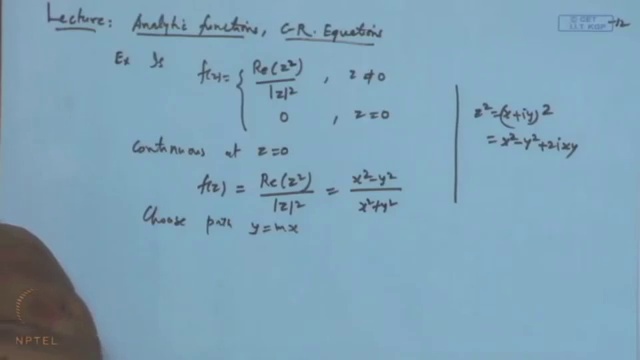 Lecture: Analytic functions, C-R. Equations
© CET
I.I.T. KGP
Ex Is f(z) = { Re(z²) / |z|² , z ≠ 0
0 , z = 0
Continuous at z=0
f(z) = Re(z²) / |z|² = x²-y² / x²+y²
Choose path y=mx
z² = (x+iy)2
= x²-y²+2ixy
NPTEL